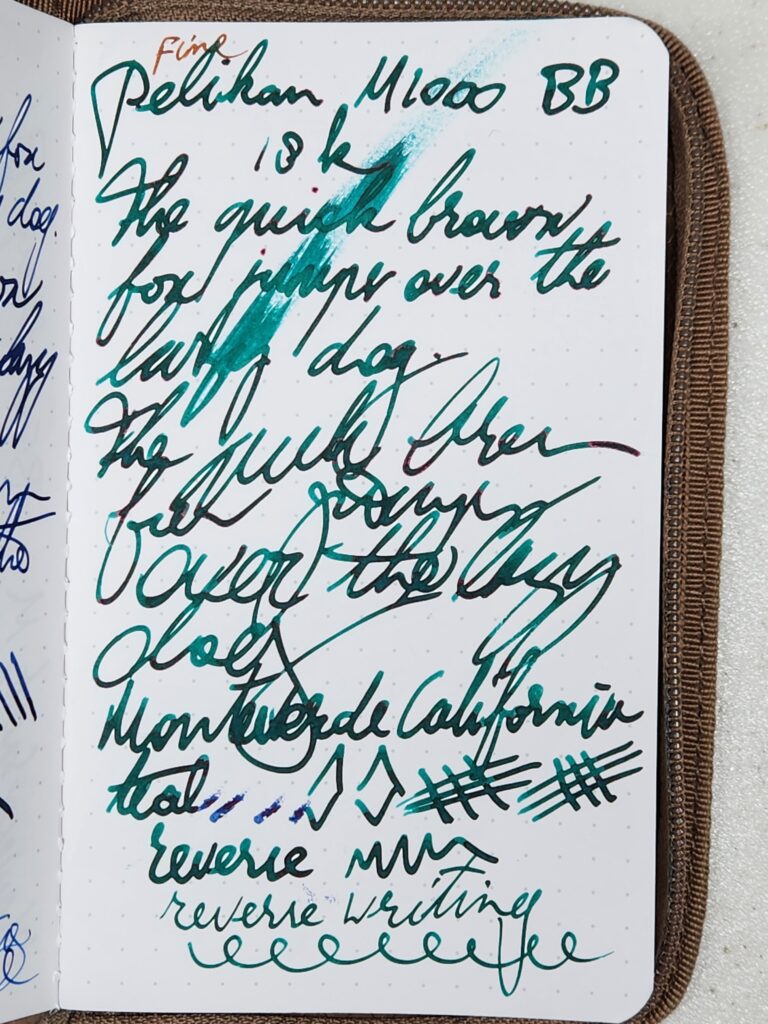 Fine
Pelikan M1000 BB
18k
The quick brown
fox jumps over the
lazy dog.
The quick
fox jumps
over the lazy
dog
Monteverde California
teal
reverse
reverse writing
fox
dog.
lazy
the